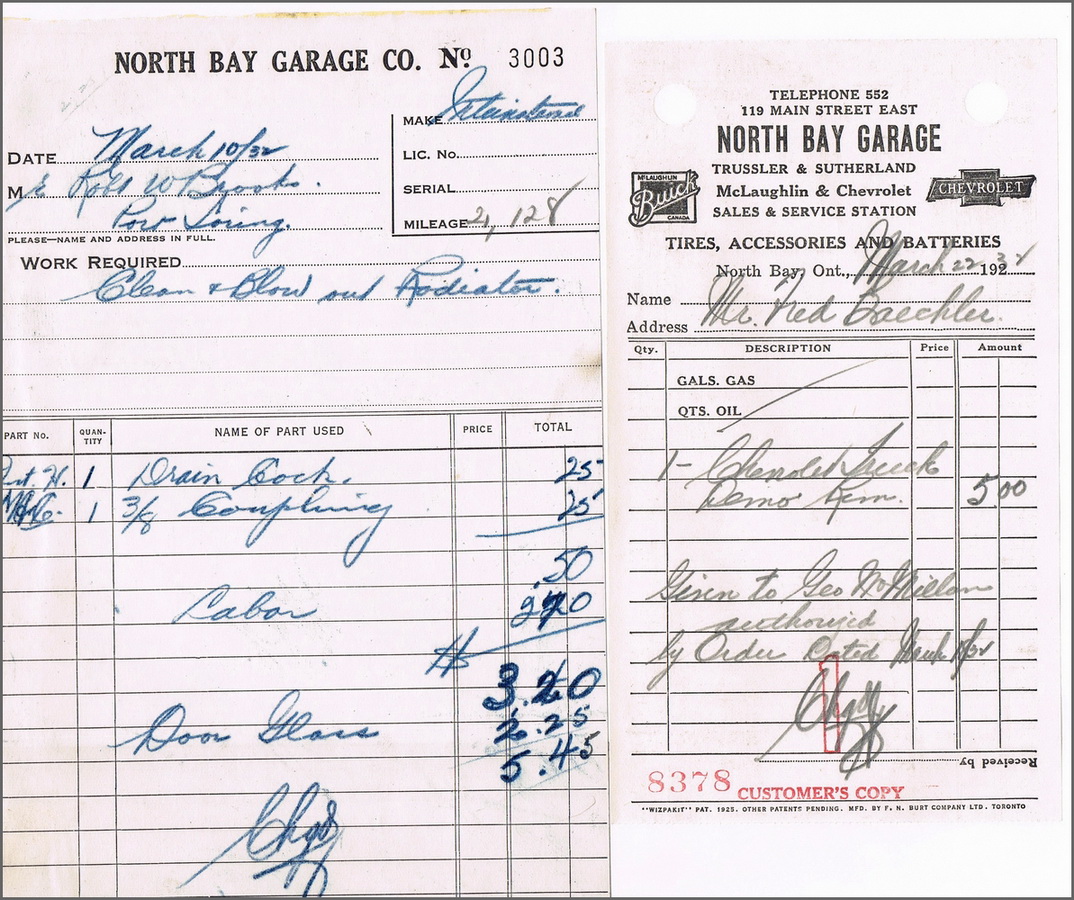 NORTH BAY GARAGE CO. No. 3003
MAKE International
LIC. No.
SERIAL
MILEAGE 2,128
DATE March 10/32
M Robt W Brooks.
Port Loring.
PLEASE—NAME AND ADDRESS IN FULL.
WORK REQUIRED
Clean & Blow out Radiator.
PART No. QUANTITY NAME OF PART USED PRICE TOTAL
1 Drain Cock. 25
1 3/8 Coupling 25
.50
Labor
$
3.20
Door Glass 2.25
5.45
Chgd
TELEPHONE 552
119 MAIN STREET EAST
NORTH BAY GARAGE
TRUSSLER & SUTHERLAND
McLaughlin & Chevrolet
SALES & SERVICE STATION
McLAUGHLIN
Buick
CANADA
CHEVROLET
TIRES, ACCESSORIES AND BATTERIES
North Bay, Ont., March 22 1932
Name Mr. Fred Baechler.
Address
Qty. DESCRIPTION Price Amount
GALS. GAS
QTS. OIL
1- Chevrolet Truck
Demo Rem. 5.00
Given to Geo McMillan
authorized
by Order Dated March 1/32
Chgd
Received by
8378 CUSTOMER'S COPY
"WIZPAKIT" PAT. 1925. OTHER PATENTS PENDING. MFD. BY F. N. BURT COMPANY LTD. TORONTO